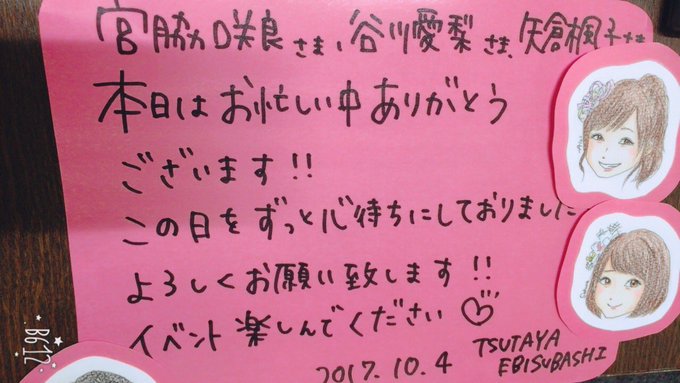 宮脇咲良さま、谷川愛梨さま、矢倉楓子さま
本日はお忙しい中ありがとう
ございます!!
この日をずっと心待ちにしておりました
よろしくお願い致します!!
イベント楽しんでください♡
2017.10.4 TSUTAYA
EBISUBASHI
B612